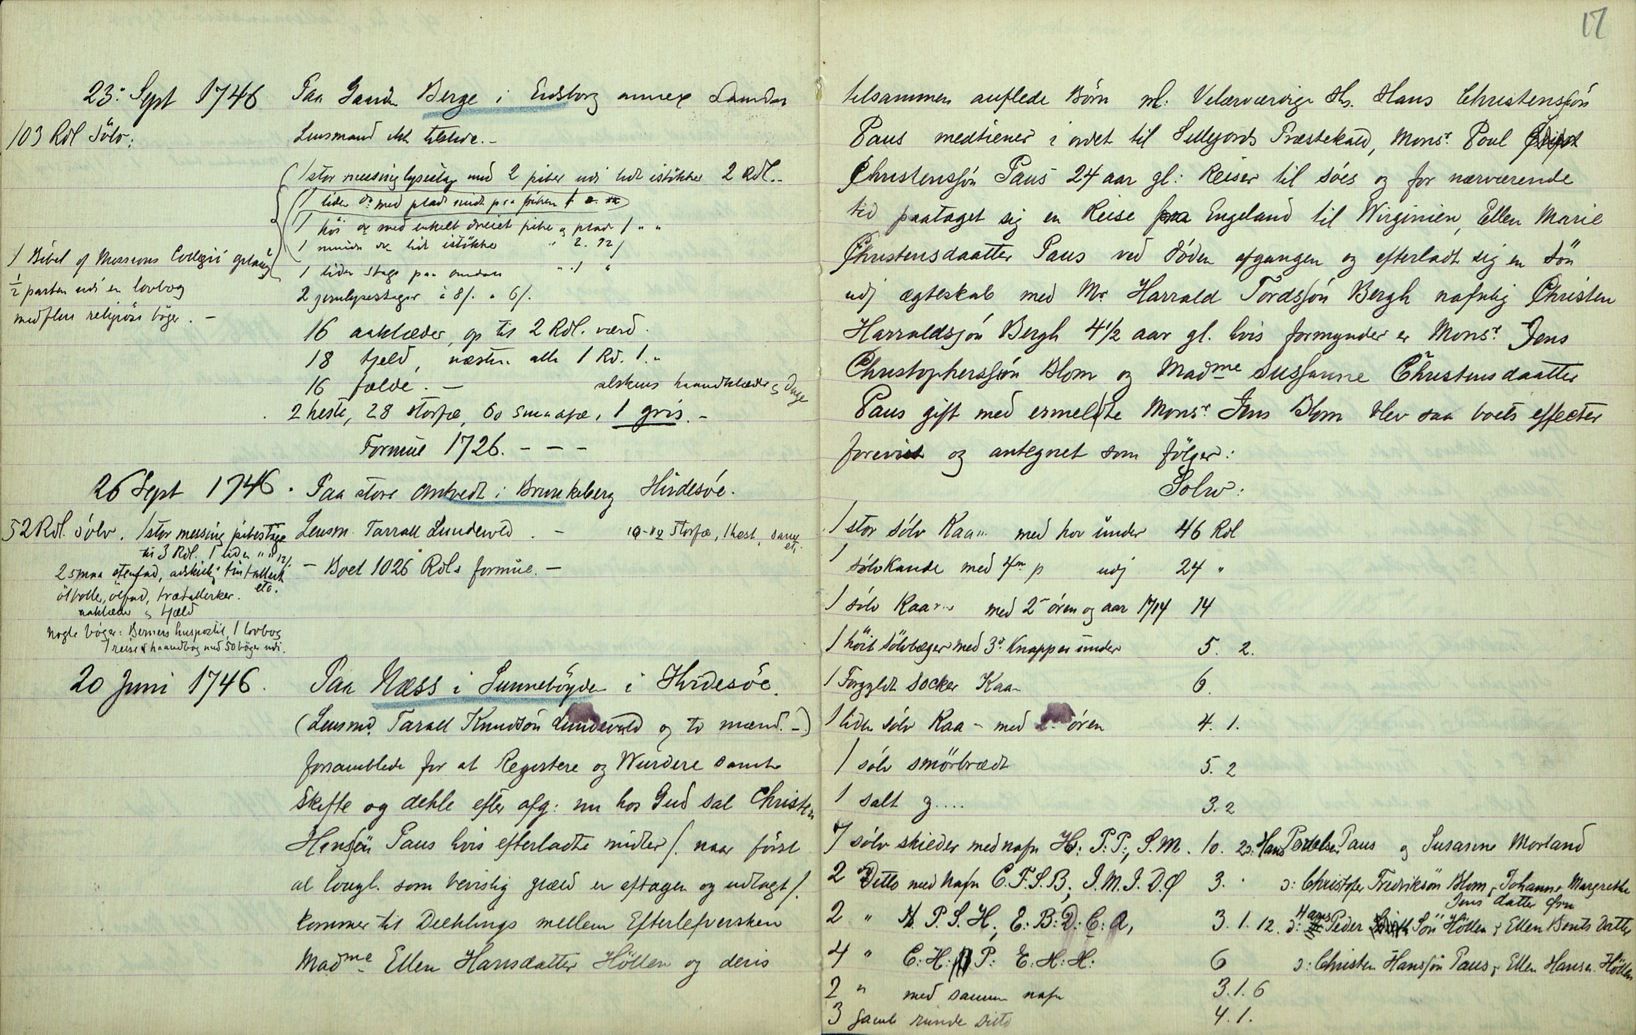 23: Sept 1746 Paa Gaard Berge i Eidsborg annex
103 Rdl Sölv: Lensmand ikke tilstede.-
1 stor messing lysestag med 2 piber udi lidt istökker 2 Rdl.-
1 liden do med plade midt paa piben
1 höi do med enkelt dreiet pibe og plade 1 " "
1 mindre do lidt istökker " 2. 12/
1 Bibel of Missions Collegii
1 liden stage paa " 1 "
1/2 parten udi en lovbog
2 jernlysestager à 8/. " 6/.
med flere religiöse böger. -
16 aaklæder, op til 2 Rdl. værd.
18 tjeld, næsten alle 1 Rd. 1.-
16 fælde. - alskens haandklæder og Duge
2 heste, 28 storfæ, 60 smaafæ, 1 gris.-
Formue 1726. - - -
26 Sept 1746. Paa store Omtvedt i Brunkeberg Hvidesöe.
52 Rdl. sölv. 1 stor messing pibestage Lensm. Tarrall Lundevold. - storfæ, 1 hest,
til 3 Rdl. 1 liden " " 12/. etc.
2 smaa stenfad, adskilig tintallerk etc. - Boet 1026 Rdls formue. -
ölbolle, ölfad, trætallerker.
aaklæder & tjeld
Nogle böger: huspostil, 1 lovbog
1 reise & haandbog med 50 böger udi.
20 Juni 1746. Paa Næss i Sunnebögden i Hvidesöe.
(Lensmd. Tarall Knudsön Lundevold og to mænd. -)
forsamblede for at Registere og Wurdere samt
Skifte og dehle efter afg: nu hos Gud sal Christen
Hansön Paus hvis efterladte midler /. naar först
al lovgl. som bevislig gield er eftagen og udlagt /.
kommer til Deehlings mellem Efterlefversken
Madme Ellen Hansdatter Hölten og deris
17
tilsammen auflede Börn nl: Velærværdige Hr. Hans Christensfön
Paus medtiener i ordet til Sillejords Præstekald, Monsr. Poul
Christensfön Paus 24 aar gl: Reiser til söes og for nærværende
tid paataget sig en Reise fra Engeland til Wirginien, Ellen Marie
Christensdaatter Paus ved Döden afgangen og efterladt sig en Sön
udj ægteskab med Mr Harrald Tordsfön Bergh nafnlig Christen
Harraldsfön Bergh 4 1/2 aar gl. hvis formynder er Monsr. Jens
Christophersfön Blom og Madme Susfanne Christensdaatter
Paus gift med ermeldte Monsr. Jens Blom blev saa boets effecter
forevist og antegnet som fölger:
Sölv:
1 stor sölv Kaa.. med hov under 46 Rdl
1 sölvkande med 4m p udj 24 "
1 sölv Kaa... med 2 ören og aar 1714 14
1 höit sölvbæger med 3de Knapper under 5. 2.
1 Forgyldt Socker Kaa- 6.
1 liden sölv Kaa- med ören 4. 1.
1 sölv smörbrædt 5. 2
1 salt g.... 3. 2
7 sölv skieder med nafn H: P. P:, S. M. 10. Hans Paus og Susanne Morland
2 Ditto med Nafn C. F. S. B, I. M. I. D. Ø 3. " ɔ: Christofer Fredriksön Blom, Johanne Margrethe
Jens datter
2 " H. P. S. H, E: B: D: C: A, 3. 1. 12. ɔ: Hans Peder Sön Hölten & Ellen Bents Datter
4 " C: H: P: E: H: H: 6 ɔ: Christen Hansfön Paus, Ellen Hansd. Hölten
2 " med samme nafn 3. 1. 6
3 gamle runde Ditto 4. 1.